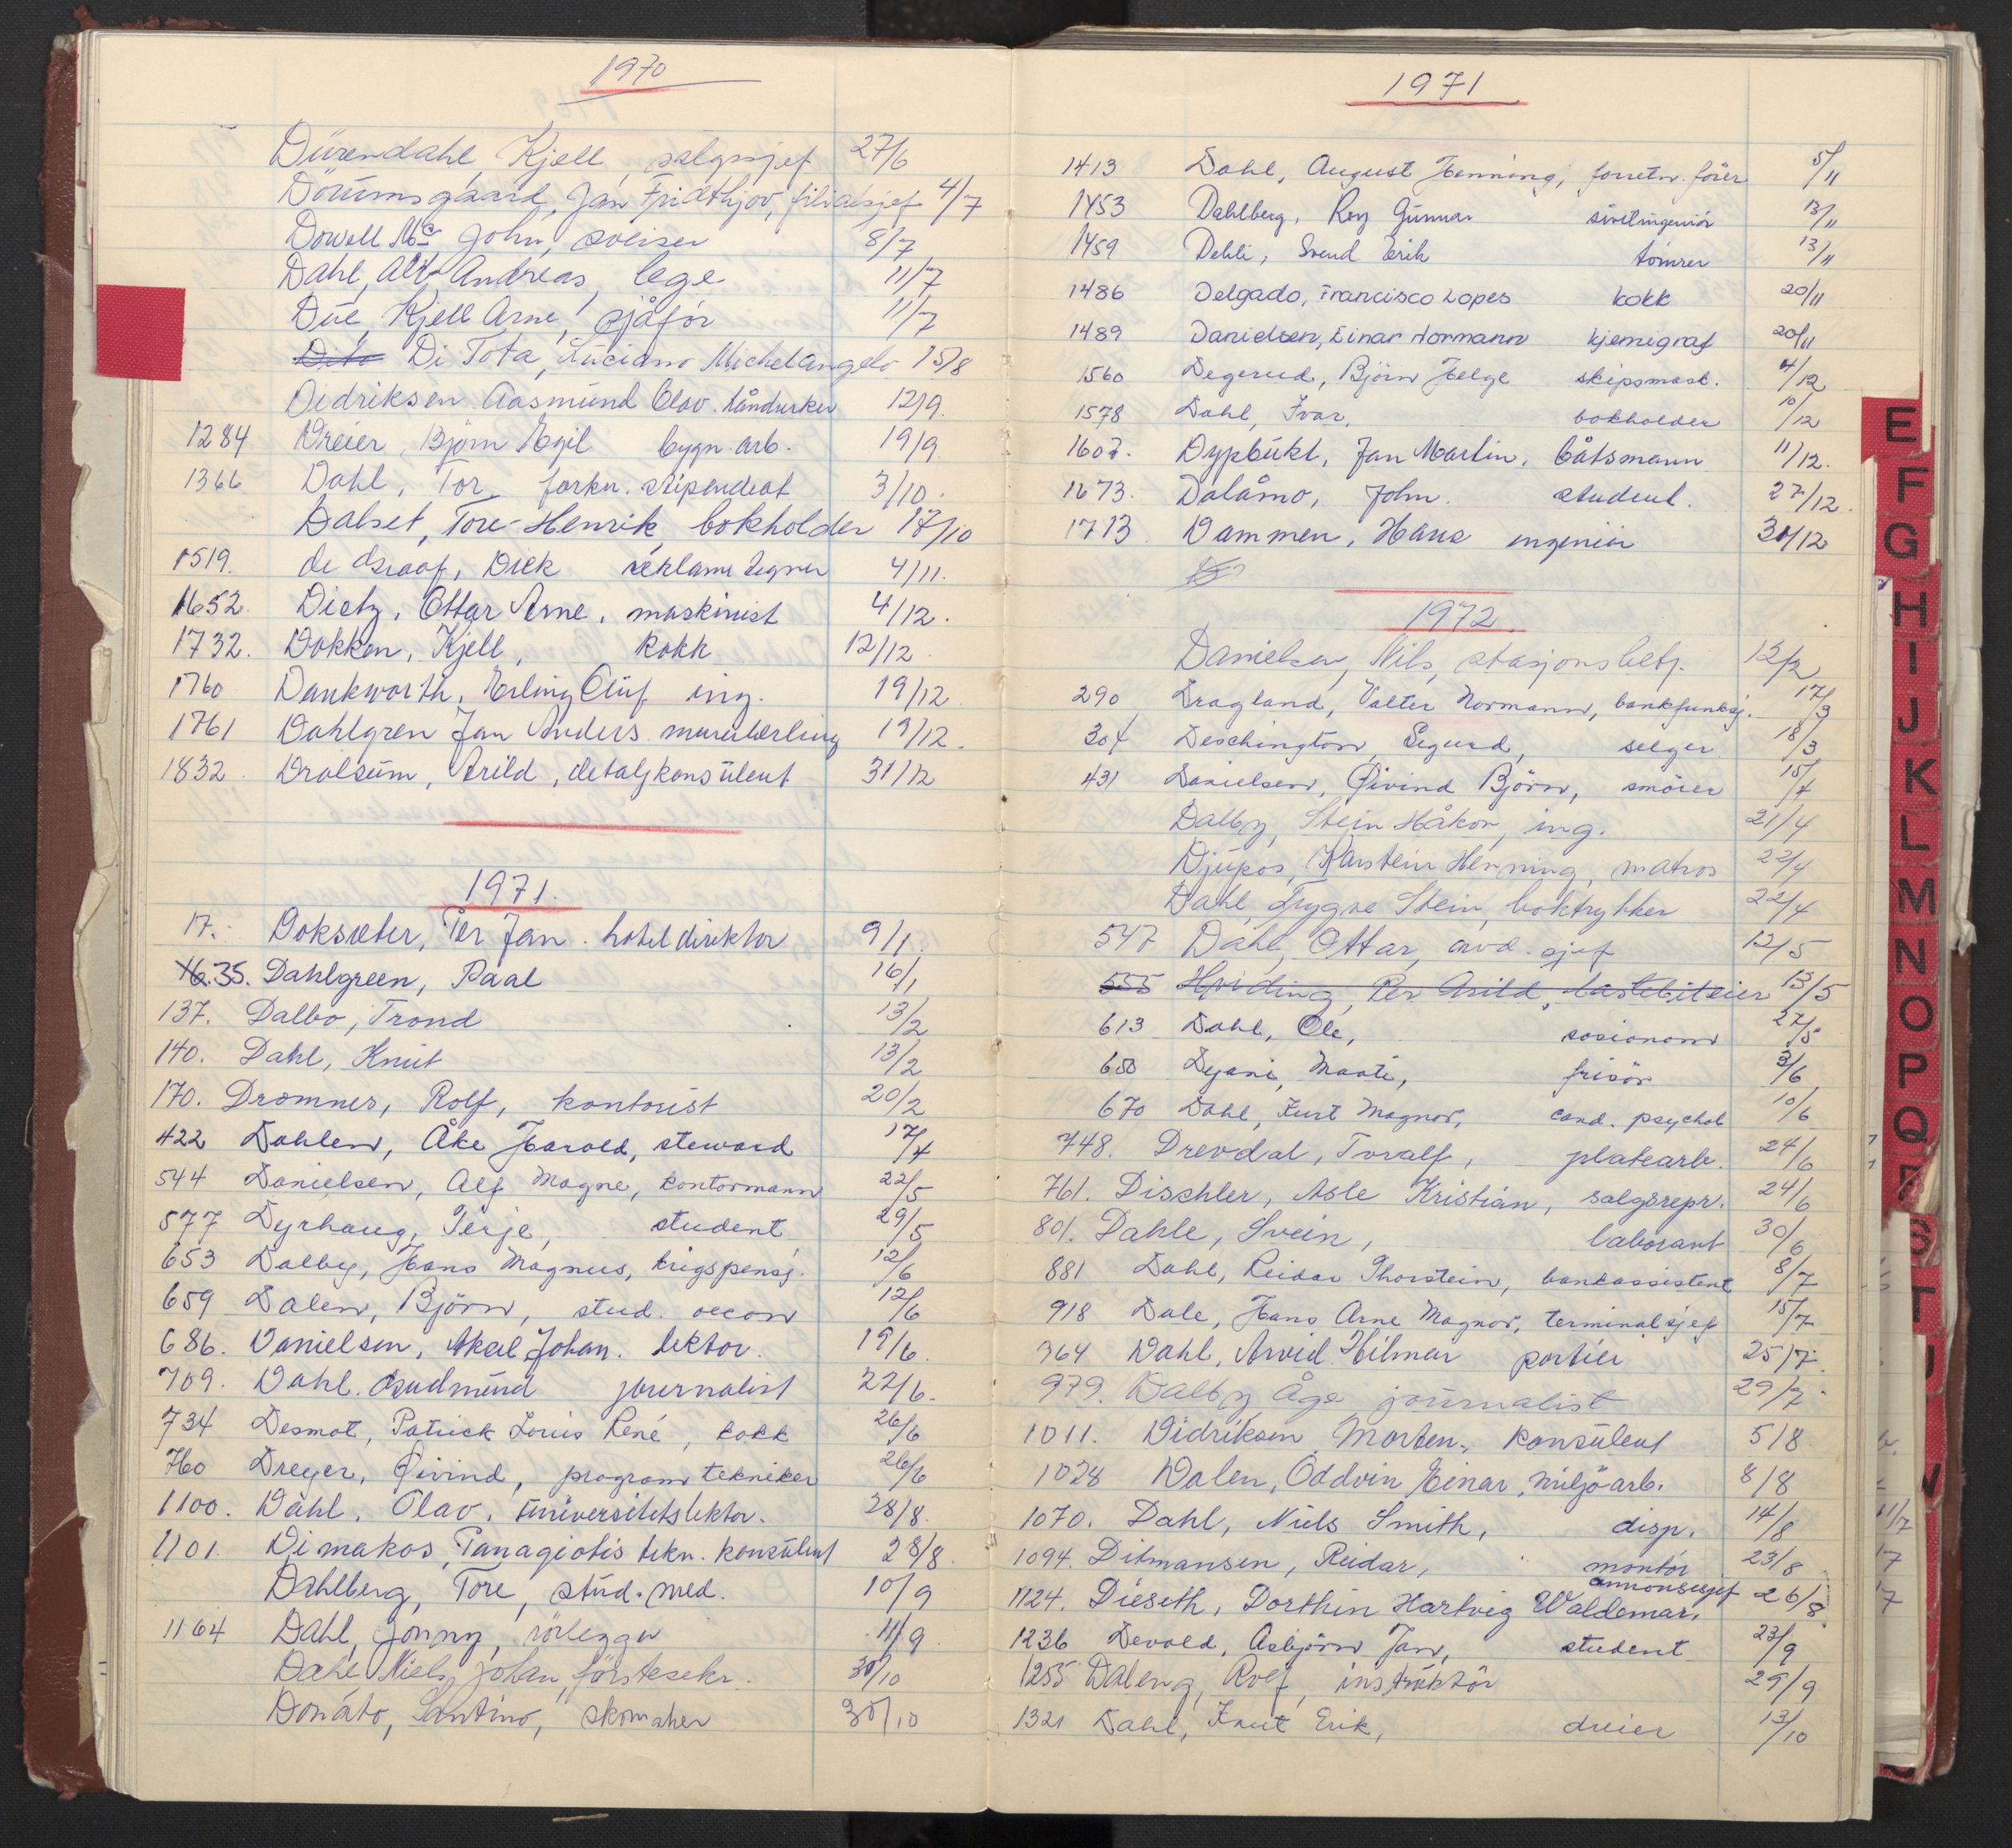 1970
Dürendahl, Kjell, salgssjef 27/6
Dörumsgaard, Jan Fridthjov, filialsjef 4/7
Dowell Mc John, sveiser 8/7
Dahl, Alf Andreas, lege 11/7
Due, Kjell Arne, sjåför 11/7
Di Tota, Luciano Michelangelo 15/8
Didriksen Aasmund Olav. håndverker 12/9.
1284 Dreier, Björn Egil bygn. arb. 19/9.
1366 Dahl, Tor forkn. stipendeat 3/10.
Dalset, Tore-Henrik, bokholder 17/10
1519. de Graaf, Dick reklame tegner 4/11.
1652. Dietz, Ottar Arne, maskinist 4/12.
1732. Dokken, Kjell, kokk 12/12.
1760 Dankworth, Erling Oluf ing. 19/12.
1761 Dahlgren Jan Anders murerlærling 19/12.
1832. Dralsum, Arild, detaljkonsulent 31/12
1971.
17. Doksæter, Per Jan. hotel direktor 9/1.
16.35. Dahlgreen, Paal 16/1
137. Dalbo, Trond 13/2
140. Dahl, Knut 13/2
170. Dromnes, Rolf, kontorist 20/2
422 Dahlen, Åke Harald, steward 17/4
544 Danielsen, Alf Magne, kontormann 22/5
577 Dyrhaug, Terje, student 29/5
653 Dalby, Hans Magnus, krigspensj. 12/6
659 Dalen, Björn, stud. oecon 12/6
686. Danielsen, Aksel Johan. lektor. 19/6.
709. Dahl. Gudmund journalist 22/6.
734 Desmot, Patrick Louis René, kokk 26/6
760 Dreyer, Øivind, program tekniker 26/6
1100. Dahl, Olav, universitetslektor. 28/8.
1101. Dimakos, Panagiotis tekn. konsulent 28/8.
Dahlberg, Tore, stud. med. 10/9
1164 Dahl, Jonny, rörlegger 11/9.
Dahl Niels Johan, förstesekr. 30/10
Donato, Santino, skomaker 30/10
1971
1413 Dahl, August Henning, forretn. förer 5/11
1453 Dahlberg, Roy Gunnar sivilingeniör 13/11
1459 Dehli, Svend Erik tömrer 13/11
1486 Delgado, Francisco Lopes kokk 20/11
1489 Danielsen, Einar Normann kjemigraf 20/11
1560 Degerud, Björn Helge skipsmask. 4/12
1578 Dahl, Ivar, bokholder 10/12
1607. Dypbukt, Jan Martin, båtsmann 11/12.
1673. Dalåmo, John. student. 27/12.
1713 Dammen, Hans ingeniör 30/12
1972.
Danielsen, Nils, stasjonsbetj. 12/2
290 Dragland, Valter Normann, bankfunksj. 17/3
304 Deschington, Sigurd, selger 18/3
431 Danielsen, Øivind Björn, smörer 15/4
Dalby, Stein Håkon, ing. 21/4
Djupos, Karstein Henning, matros 22/4
Dahl, Trygve Stein, boktrykker 22/4
547 Dahl, Ottar, avd. sjef 12/5
555 Hviding, Per Arild, lastebileier 13/5
613 Dahl, Ole, sosionom 27/5
650 Dyani, Maati, frisör 3/6
670 Dahl, Kurt Magnor, cand. psychol 10/6
748. Drevdal, Toralf, platearb. 24/6
761. Dischler, Asle Kristian, salgsrepr. 24/6
801. Dahle, Svein, laborant 30/6
881 Dahl, Reidar Thorstein, bankassistent 8/7
918 Dale, Hans Arne Magnor, terminalsjef 15/7
964 Dahl, Arvid Hilmar portier 25/7.
979. Dalby Åge journalist 29/7.
1011. Didriksen Morten, konsulent 5/8
1028 Dalen, Oddvin Einar, miljöarb. 8/8
1070. Dahl, Niels Smith, disp. 14/8
1094. Ditmansen, Reidar, montör 23/8
annonsesjef
1124. Dieseth, Dorthin Hartvig Waldemar, 26/8.
1236 Devold, Asbjörn Jan, student 23/9
1255 Daleng, Rolf, instruktör 29/9
1321 Dahl, Knut Erik, dreier 13/10
E
F
G
H
I
J
K
L
M
N
O
P
Q
R
S
T
U
V
11/7
17
17